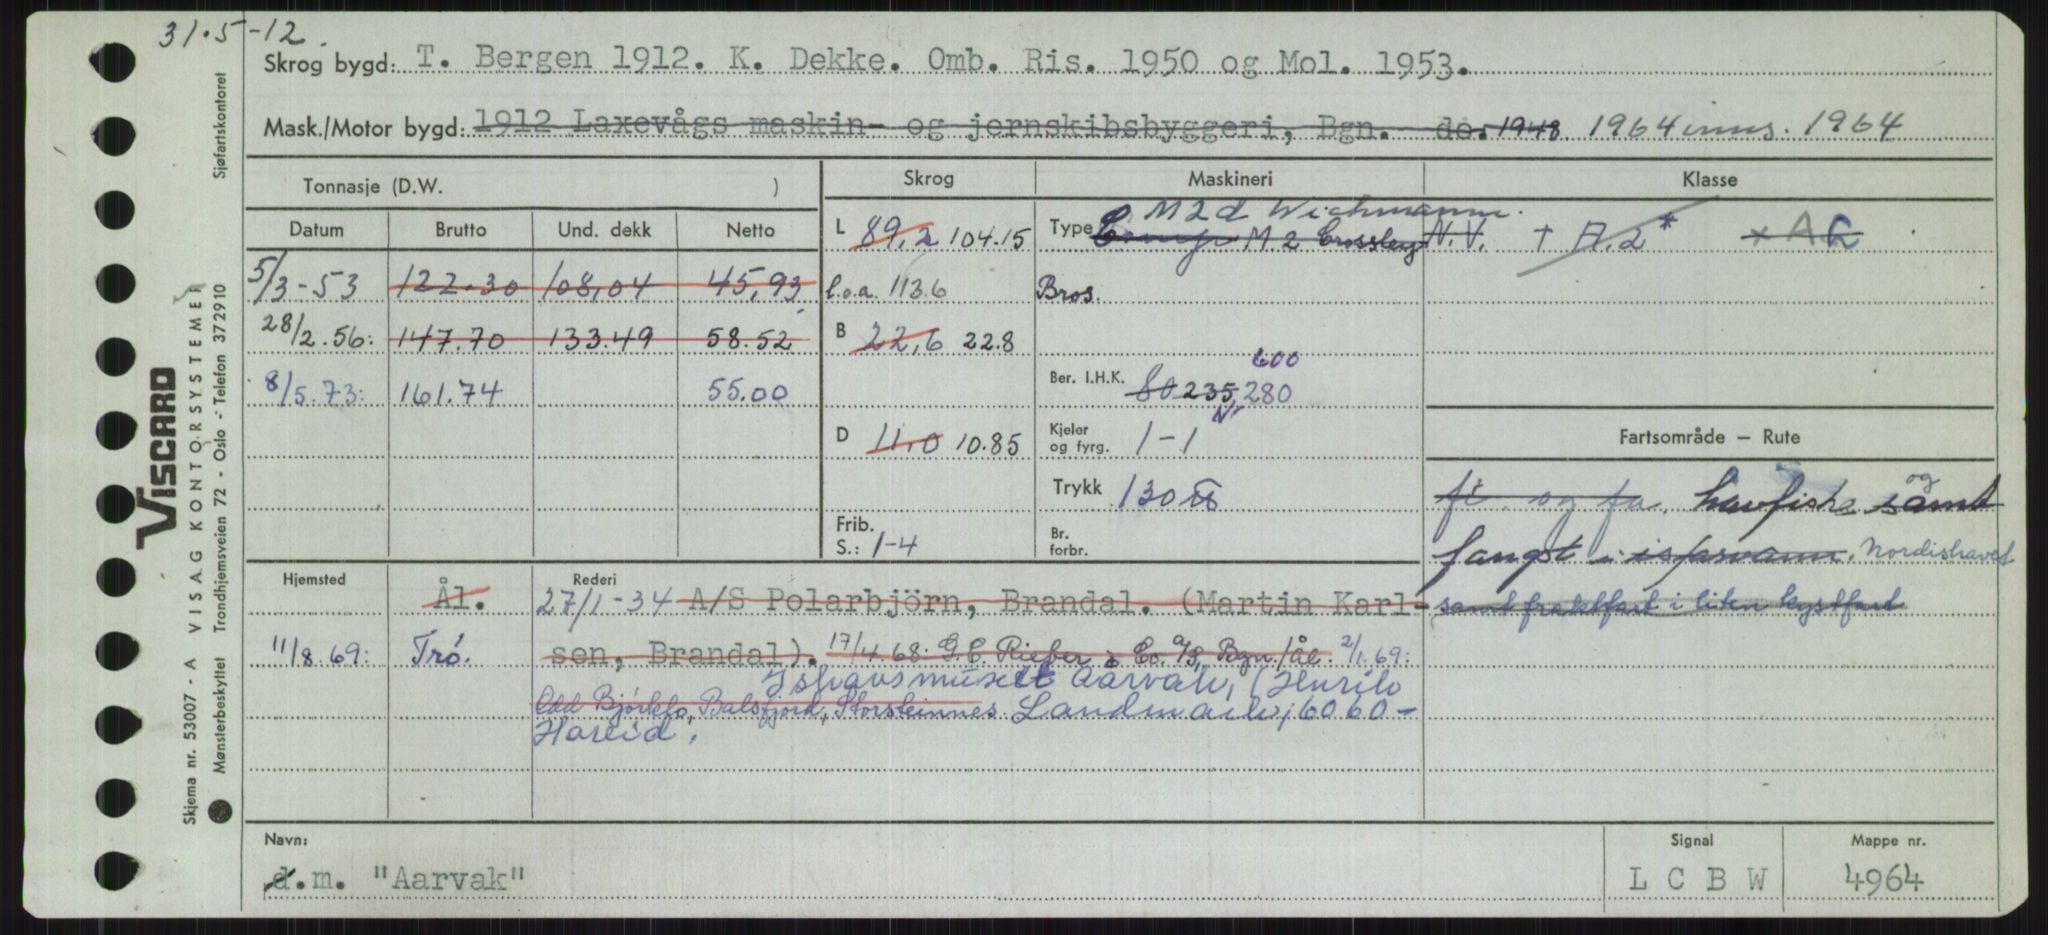 31.5-12.
Skrog bygd: T. Bergen 1912. K. Dekke. Omb. Ris. 1950 og Mol. 1953.
Mask./Motor bygd: 1912 Laxevågs maskin- og jernskibsbyggeri, Bgn. do. 1948 1964 inns. 1964
Tonnasje (D.W. )
Skrog
Maskineri
Klasse
Datum Brutto Und. dekk Netto
5/3-53 122.30 108,04 45,93
28/2.56: 147.70 133.49 58.52
8/5.73: 161.74 55.00
L 89,2 104.15
l.o.a. 113.6
B 22,6 22.8
D 11,0 10.85
Frib.
S.: 1-4
M2d Wichmann.
Type Comp M2 Crossley
Bros.
600
Ber. I.H.K. 80 235 280
Kjeler
og fyrg. 1-1
Trykk 130
Br.
forbr.
N.V. + A.2* x A
Fartsområde — Rute
fi. og fa. havfiske og samt
fangst i isfarvann. Nordishavet
samt fraktfart i liten kystfart
Hjemsted
Rederi
Ål. 27/1-34 A/S Polarbjörn, Brandal. (Martin Karl-
11/8.69: Trö. sen, Brandal). 17/4.68. G.C. Rieber & Co. A/S, Bgn./Ål. 2/1.69:
Ishavsmuseet Aarvak, (Henrik
Odd Bjørkfo, Balsfjord, Storsteinnes. Landmark, 6060-
Hareid.
Navn:
d.m. "Aarvak"
Signal
L C B W
Mappe nr.
4964
VISCARD
Skjema nr. 53007 - A VISAG KONTORSYSTEMER Sjøfartskontoret
Mønsterbeskyttet Trondhjemsveien 72 - Oslo - Telefon 372910